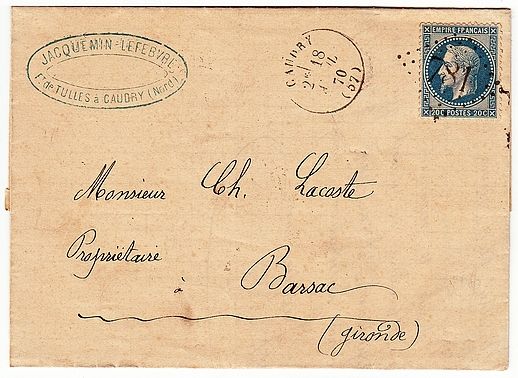 JACQUEMIN-LEFEBVRE
Ft de TULLES à CAUDRY (Nord)
CAUDRY
2e
18
70
(57)
EMPIRE FRANÇAIS
20C POSTES 20C
Monsieur Ch. Lacoste
Propriétaire
à Barsac
(gironde)